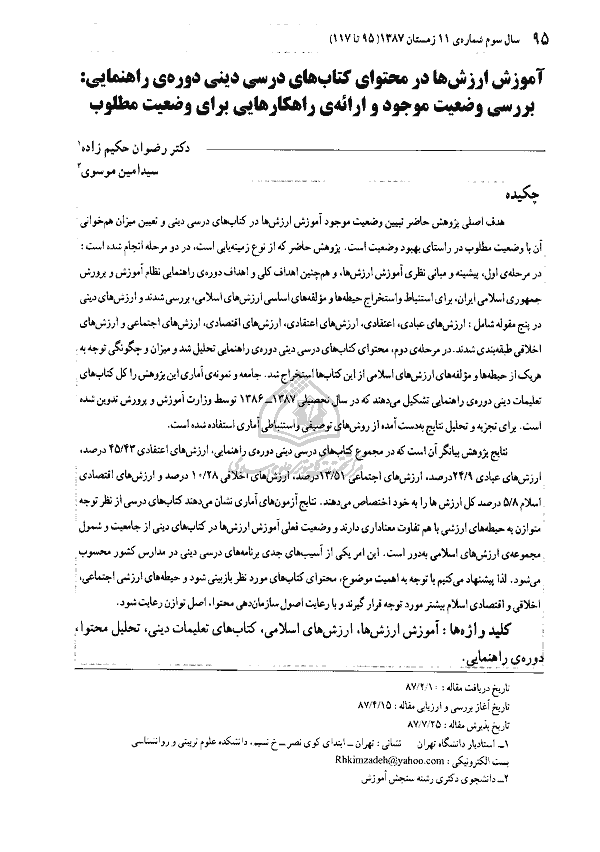 ۹۵ سال سوم شماره‌ی ۱۱ زمستان ۱۳۸۷ (۹۵ تا ۱۱۷)
آموزش ارزش‌ها در محتوای کتاب‌های درسی دینی دوره‌ی راهنمایی:
بررسی وضعیت موجود و ارائه‌ی راهکارهایی برای وضعیت مطلوب
دکتر رضوان حکیم زاده۱
سیدامین موسوی۲
چکیده
هدف اصلی پژوهش حاضر تبیین وضعیت موجود آموزش ارزش‌ها در کتاب‌های درسی دینی و تعیین میزان هم‌خوانی
آن با وضعیت مطلوب در راستای بهبود وضعیت است. پژوهش حاضر که از نوع زمینه‌یابی است، در دو مرحله انجام شده است :
در مرحله‌ی اول، پیشینه و مبانی نظری آموزش ارزش‌ها، و هم‌چنین اهداف کلی و اهداف دوره‌ی راهنمایی نظام آموزش و پرورش
جمهوری اسلامی ایران، برای استنباط واستخراج حیطه‌ها و مؤلفه‌های اساسی ارزش‌های اسلامی، بررسی شدند و ارزش‌های دینی
در پنج مقوله شامل : ارزش‌های عبادی، اعتقادی، ارزش‌های اعتقادی، ارزش‌های اقتصادی، ارزش‌های اجتماعی و ارزش‌های
اخلاقی طبقه‌بندی شدند. در مرحله‌ی دوم، محتوای کتاب‌های درسی دینی دوره‌ی راهنمایی تحلیل شد و میزان و چگونگی توجه به
هریک از حیطه‌ها و مؤلفه‌های ارزش‌های اسلامی از این کتاب‌ها استخراج شد. جامعه و نمونه‌ی آماری این پژوهش را کل کتاب‌های
تعلیمات دینی دوره‌ی راهنمایی تشکیل می‌دهند که در سال تحصیلی ۱۳۸۷ـ۱۳۸۶ توسط وزارت آموزش و پرورش تدوین شده
است. برای تجزیه و تحلیل نتایج به‌دست آمده از روش‌های توصیفی واستنباطی آماری استفاده شده است.
نتایج پژوهش بیانگر آن است که در مجموع کتاب‌های درسی دینی دوره‌ی راهنمایی، ارزش‌های اعتقادی ۴۵/۴۳ درصد،
ارزش‌های عبادی ۲۴/۹درصد، ارزش‌های اجتماعی ۱۳/۵۱درصد، ارزش‌های اخلاقی ۱۰/۲۸ درصد و ارزش‌های اقتصادی
اسلام ۵/۸ درصد کل ارزش ها را به خود اختصاص می‌دهند. نتایج آزمون‌های آماری نشان می‌دهند کتاب‌های درسی از نظر توجه
متوازن به حیطه‌های ارزشی با هم تفاوت معناداری دارند و وضعیت فعلی آموزش ارزش‌ها در کتاب‌های دینی از جامعیت و شمول
مجموعه‌ی ارزش‌های اسلامی به‌دور است. این امر یکی از آسیب‌های جدی برنامه‌های درسی دینی در مدارس کشور محسوب
می‌شود. لذا پیشنهاد می‌کنیم با توجه به اهمیت موضوع، محتوای کتاب‌های مورد نظر بازبینی شود و حیطه‌های ارزشی اجتماعی،
اخلاقی و اقتصادی اسلام بیشتر مورد توجه قرار گیرند و با رعایت اصول سازمان‌دهی محتوا، اصل توازن رعایت شود.
کلید واژه‌ها : آموزش ارزش‌ها، ارزش‌های اسلامی، کتاب‌های تعلیمات دینی، تحلیل محتوا،
دوره‌ی راهنمایی.
تاریخ دریافت مقاله : ۸۷/۲/۱۰
تاریخ آغاز بررسی و ارزیابی مقاله : ۸۷/۴/۱۵
تاریخ پذیرش مقاله : ۸۷/۷/۲۵
۱ـ استادیار دانشگاه تهران نشانی : تهران – ابتدای کوی نصر – خ نسیم، دانشکده علوم تربیتی و روانشناسی
پست الکترونیکی : Rhkimzadeh@yahoo.com
۲ـ دانشجوی دکتری رشته سنجش آموزش